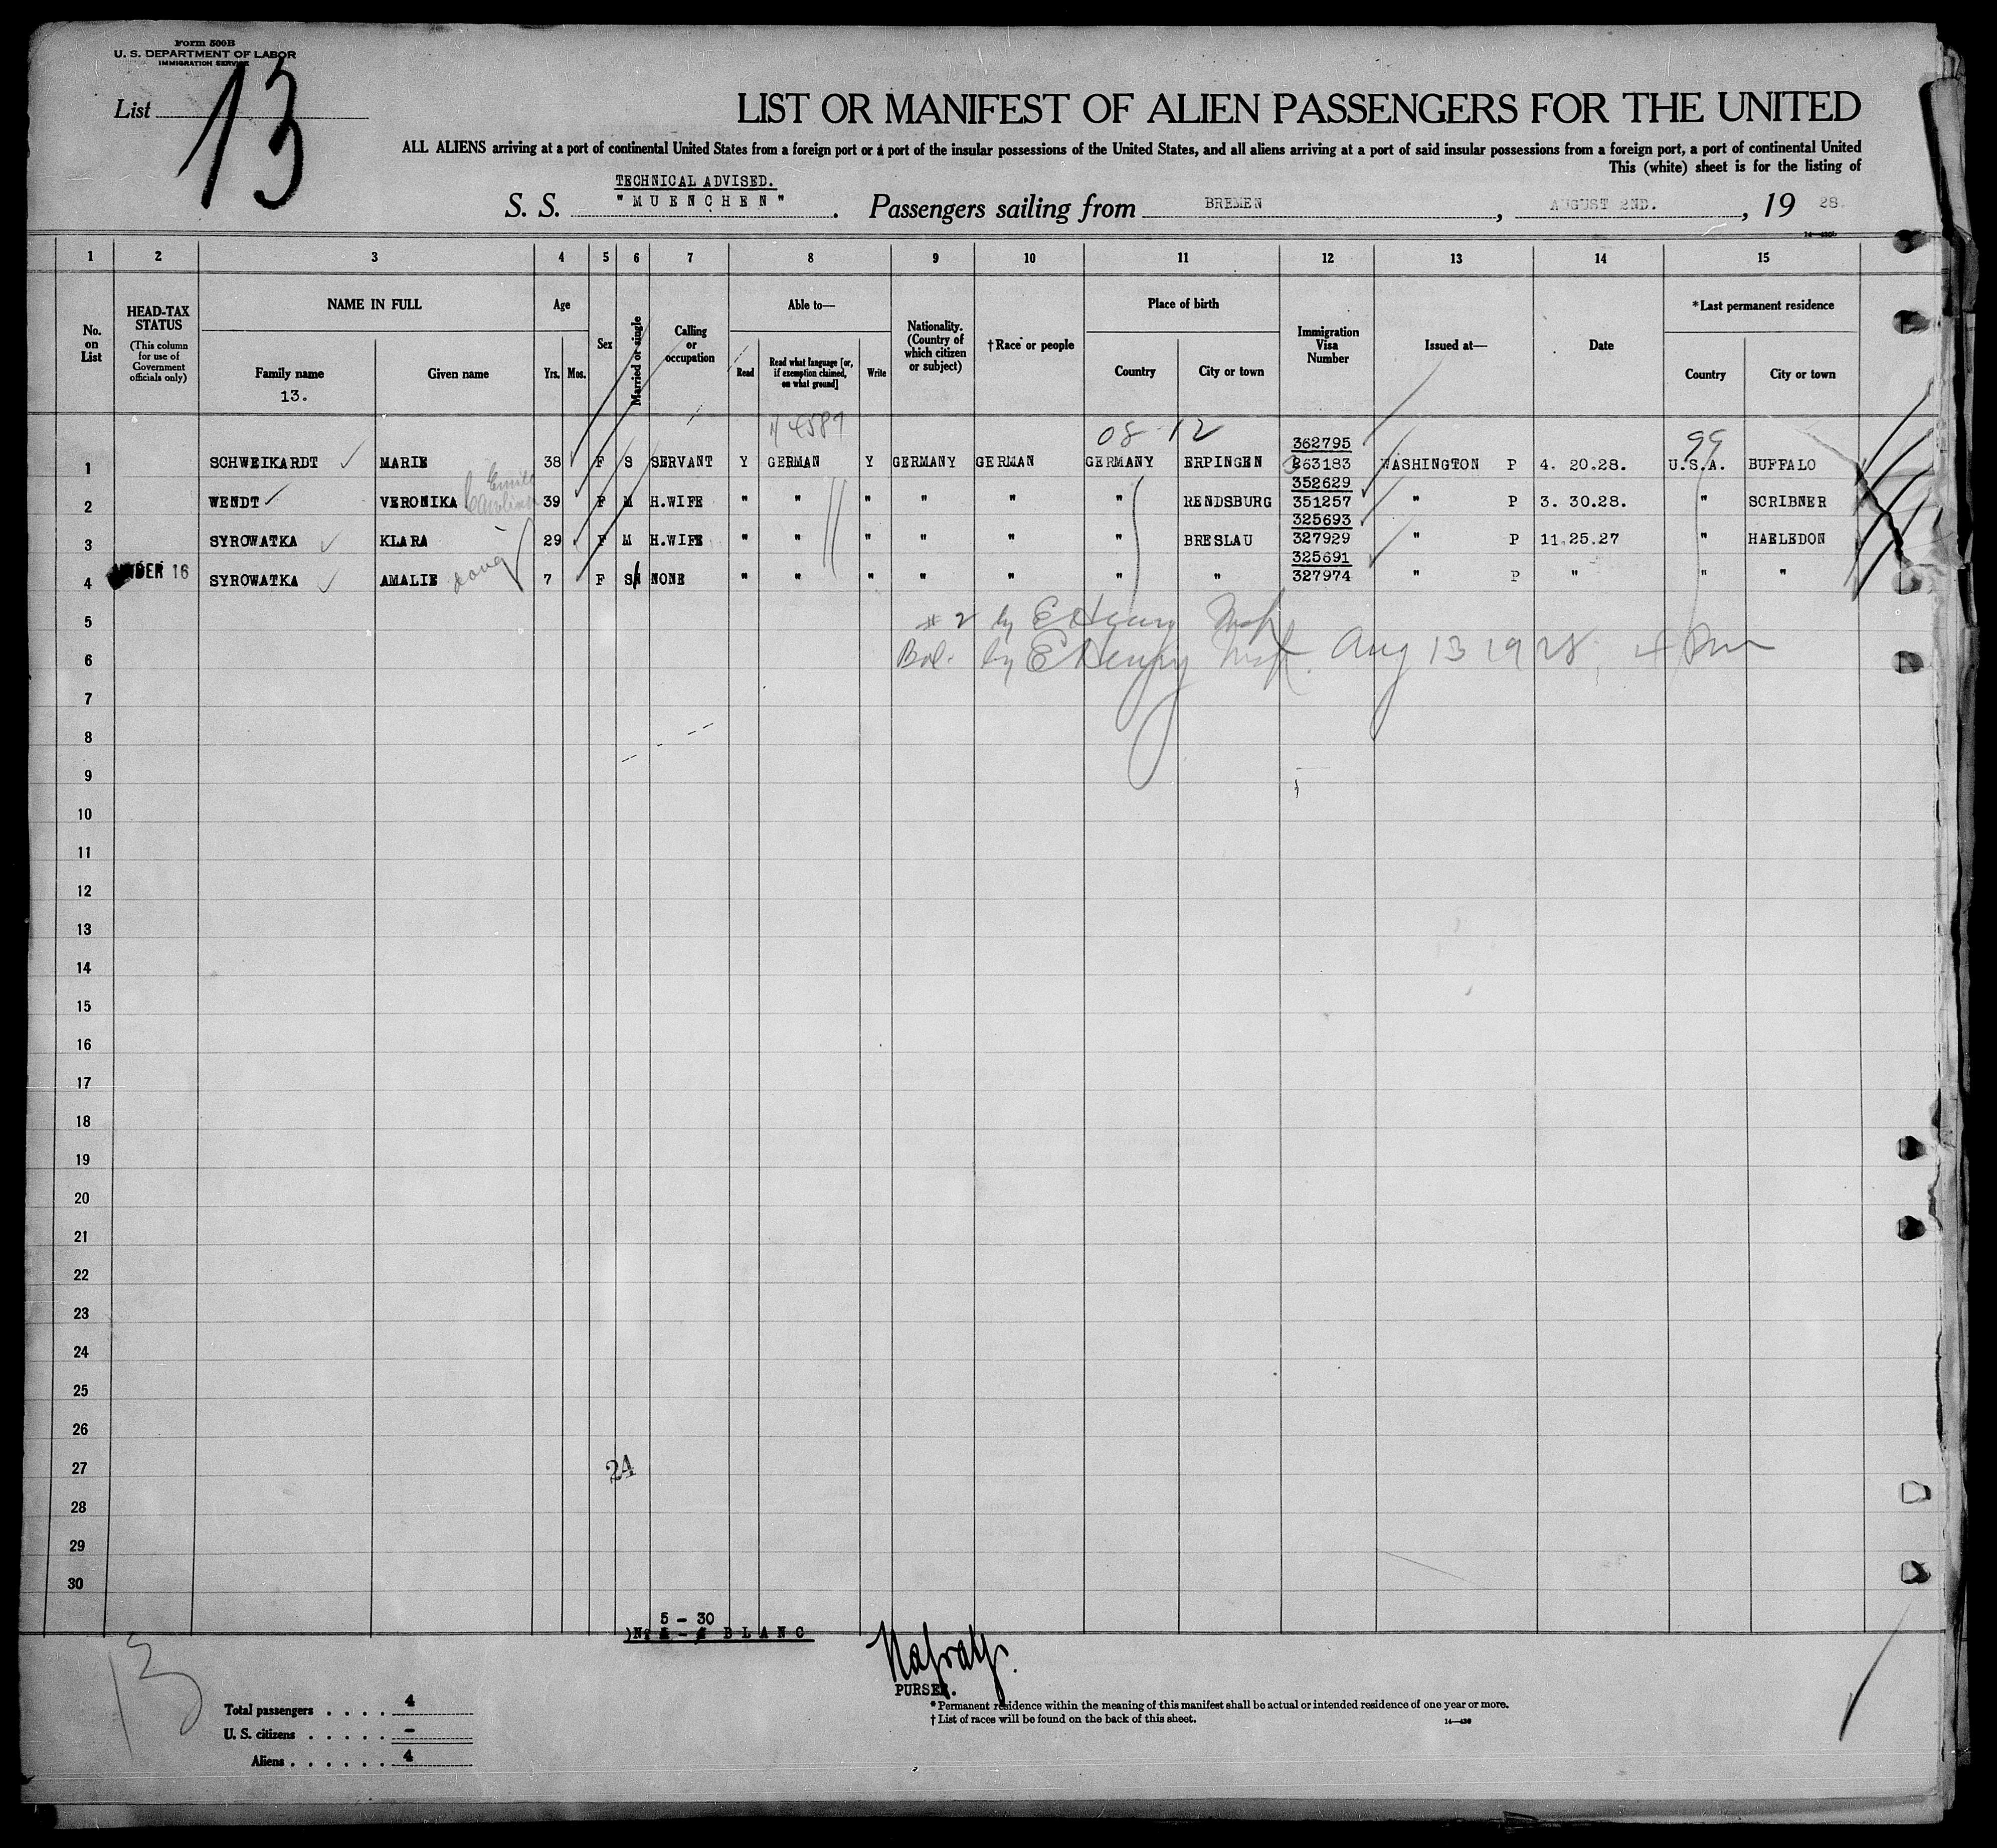 Form 500B
U. S. DEPARTMENT OF LABOR
IMMIGRATION SERVICE
List 13
LIST OR MANIFEST OF ALIEN PASSENGERS FOR THE UNITED
ALL ALIENS arriving at a port of continental United States from a foreign port or a port of the insular possessions of the United States, and all aliens arriving at a port of said insular possessions from a foreign port, a port of continental United
This (white) sheet is for the listing of
TECHNICAL ADVISED.
S. S. "MUENCHEN". Passengers sailing from BREMEN, AUGUST 2ND., 19 28.
1 2 3 4 5 6 7 8 9 10 11 12 13 14 15
No. on List
HEAD-TAX STATUS
(This column for use of Government officials only)
NAME IN FULL
Family name
13.
Given name
Age
Yrs. Mos.
Sex
Married or single
Calling or occupation
Able to—
Read
Read what language [or, if exemption claimed, on what ground]
Write
Nationality. (Country of which citizen or subject)
†Race or people
Place of birth
Country
City or town
Immigration Visa Number
Issued at—
Date
*Last permanent residence
Country
City or town
08-12
99
362795
1 SCHWEIKARDT MARIE 38 F S SERVANT Y GERMAN Y GERMANY GERMAN GERMANY ERPINGEN 263183 WASHINGTON P 4. 20.28. U.S.A. BUFFALO
352629
2 WENDT VERONIKA 39 F M H.WIFE " " " " " " RENDSBURG 351257 " P 3. 30.28. " SCRIBNER
325693
3 SYROWATKA KLARA 29 F M H.WIFE " " " " " " BRESLAU 327929 " P 11.25.27 " HAELEDON
325691
4 UNDER 16 SYROWATKA AMALIE 7 F S NONE " " " " " " " 327974 " P " " "
5 #2 by E Henry Insp
6 Bal. by E Henry Insp. Aug 13 1928,
7
8
9
10
11
12
13
14
15
16
17
18
19
20
21
22
23
24
25
26
27 24
28
29
30
5 - 30
BLANC
13
PURSER.
Total passengers . . . . 4
U. S. citizens . . . . . -
Aliens . . . . . . 4
* Permanent residence within the meaning of this manifest shall be actual or intended residence of one year or more.
† List of races will be found on the back of this sheet.